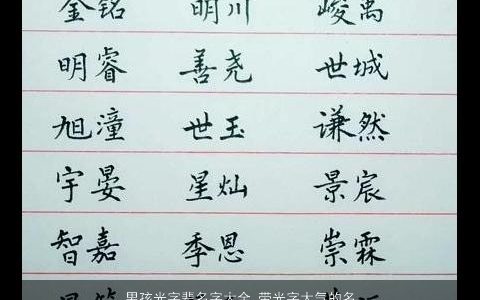 金铭 明川 峻禹
明睿 善尧 世城
旭潼 世玉 谦然
宇晏 星灿 景宸
智嘉 季恩 崇霖
男孩光字辈名字大全 带光字大气的名